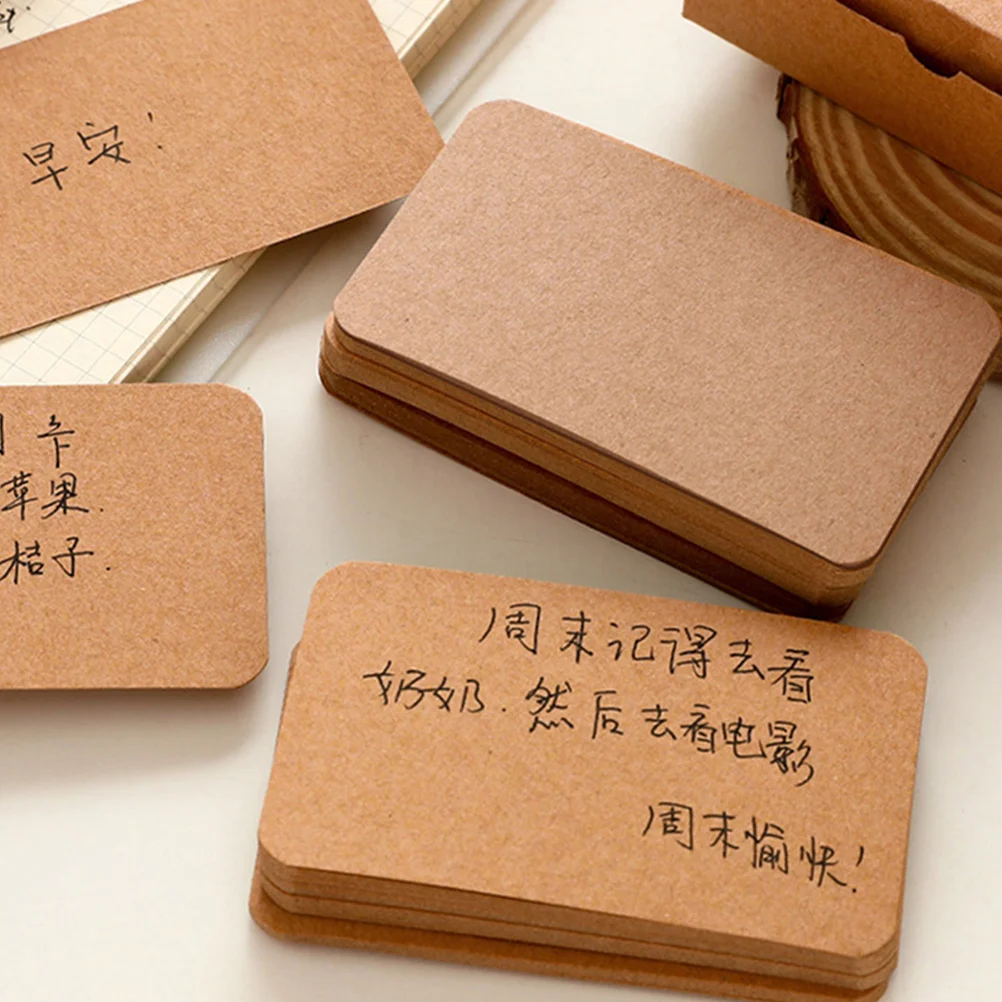 早安!
苹果.
桔子.
周末记得去看
奶奶.然后去看电影
周末愉快!